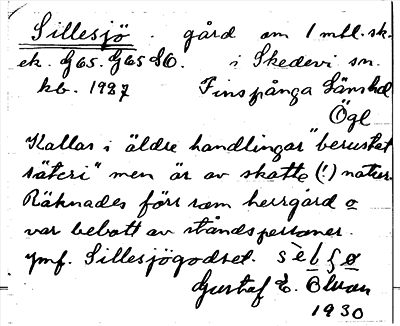 Sillesjö. gård om 1 mtl. sk.
ek. G65. G65 SO. i Skedevi sn.
kb. 1927 Finspånga Länshd
Ögl
Kallas i äldre handlingar "berustat
säteri" men är av skatte (!) natur.
Räknades förr som herrgård o
var bebott av ståndspersoner.
Jmf. Sillesjögodset.
Gustaf E. Blman
1930